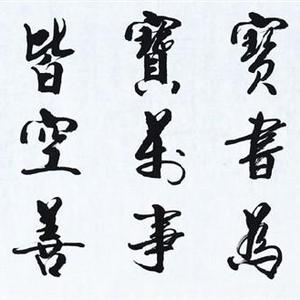 寶書為
寶萬事
皆空善